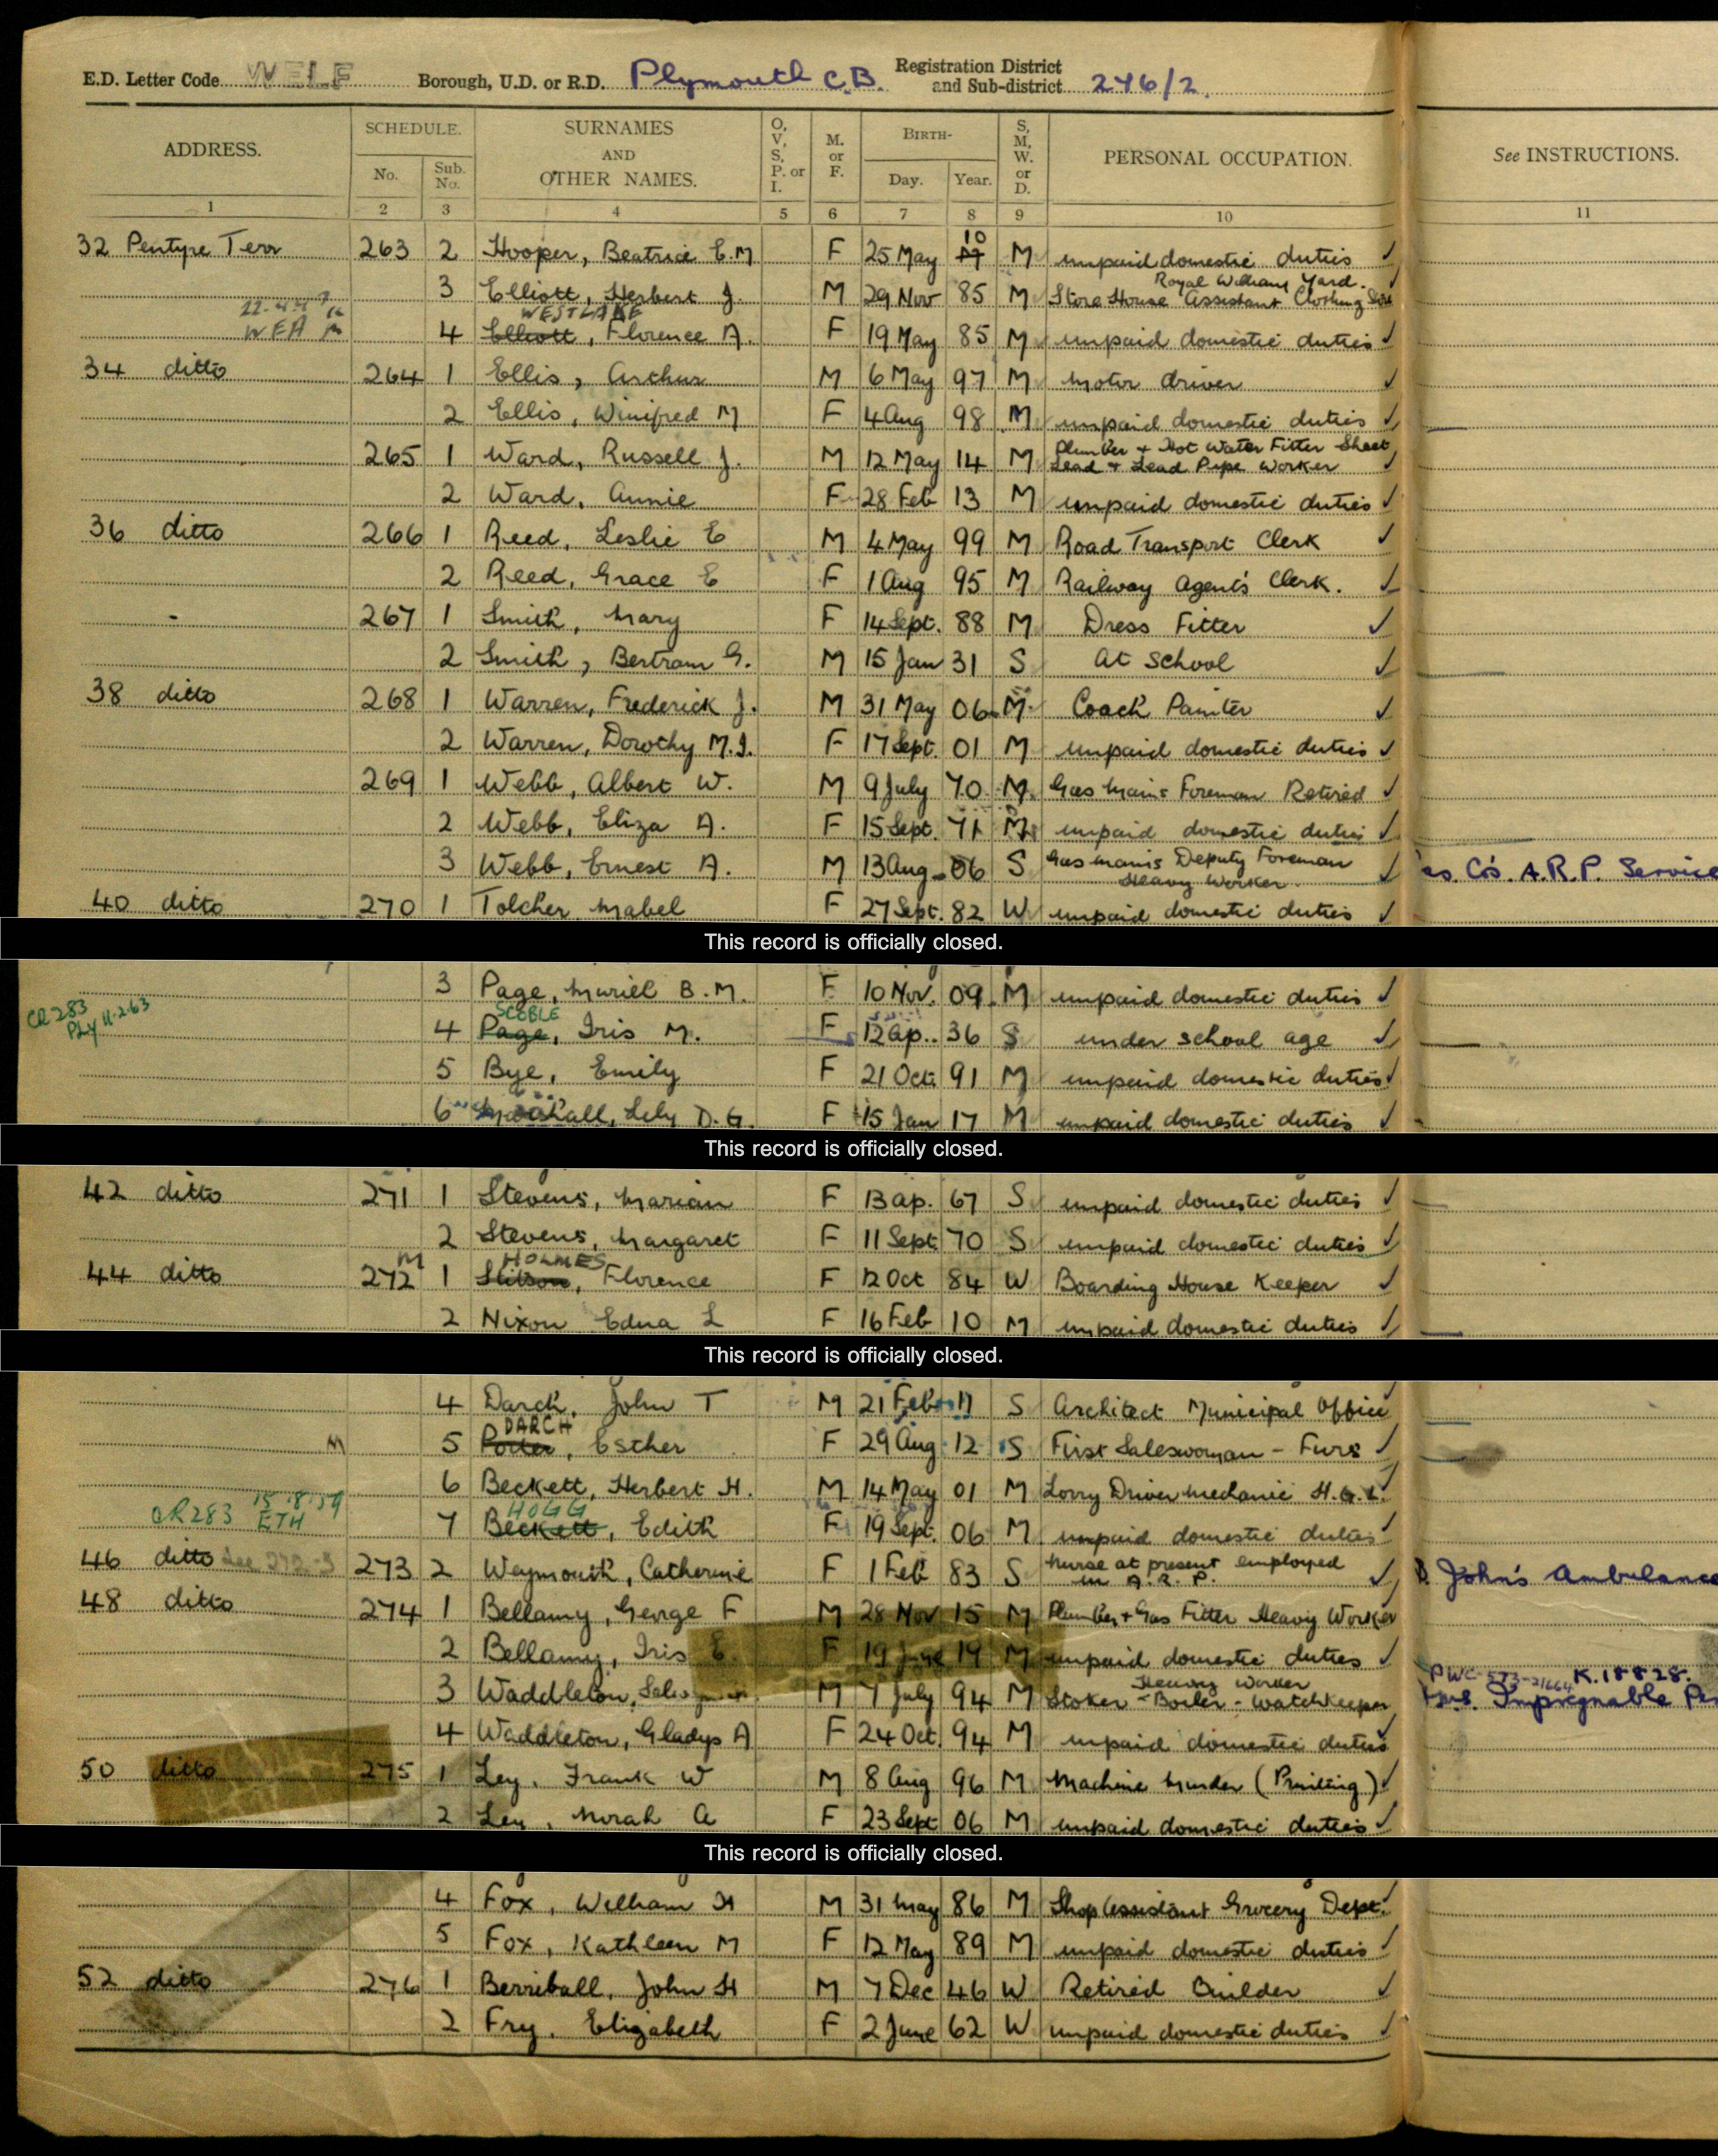 E.D. Letter Code WELF Borough, U.D. or R.D. Plymouth C.B. Registration District and Sub-district 276/2.
ADDRESS. SCHEDULE. No. Sub. No. SURNAMES AND OTHER NAMES. O, V, S, P. or I. M. or F. BIRTH- Day. Year. S, M, W. or D. PERSONAL OCCUPATION. See INSTRUCTIONS.
1 2 3 4 5 6 7 8 9 10 11
32 Pentyre Terr 263 2 Hooper, Beatrice E.M F 25 May 10 M unpaid domestic duties ✓
3 Elliott, Herbert J. M 29 Nov 85 M Store House Assistant Clothing Store Royal William Yard.
22.4.47 WEA WESTLAKE
4 Elliott, Florence A. F 19 May 85 M unpaid domestic duties ✓
34 ditto 264 1 Ellis, Arthur M 6 May 97 M Motor driver ✓
2 Ellis, Winifred M F 4 Aug 98 M unpaid domestic duties ✓
265 1 Ward, Russell J. M 12 May 14 M Plumber + Hot Water Fitter Sheet Lead + Lead Pipe Worker ✓
2 Ward, Annie F 28 Feb 13 M unpaid domestic duties ✓
36 ditto 266 1 Reed, Leslie E M 4 May 99 M Road Transport Clerk ✓
2 Reed, Grace E F 1 Aug 95 M Railway Agent's Clerk. ✓
267 1 Smith, Mary F 14 Sept. 88 M Dress Fitter ✓
2 Smith, Bertram G. M 15 Jan 31 S At School ✓
38 ditto 268 1 Warren, Frederick J. M 31 May 06 M Coach Painter ✓
2 Warren, Dorothy M.I. F 17 Sept. 01 M unpaid domestic duties ✓
269 1 Webb, Albert W. M 9 July 70 M Gas Mains Foreman Retired ✓
2 Webb, Eliza A. F 15 Sept. 71 M unpaid domestic duties ✓
3 Webb, Ernest A. M 13 Aug 06 S Gas Mains Deputy Foreman Heavy Worker ✓ as Co's. A.R.P. Service
40 ditto 270 1 Tolcher Mabel F 27 Sept. 82 W unpaid domestic duties ✓
This record is officially closed.
3 Page, Muriel B.M. F 10 Nov. 09 M unpaid domestic duties ✓
CR283 PLY 11.2.63 SCOBLE
4 Page, Iris M. F 12 Ap.. 36 S under school age ✓
5 Bye, Emily F 21 Oct. 91 M unpaid domestic duties ✓
6 Lily D.G. F 15 Jan 17 M unpaid domestic duties ✓
This record is officially closed.
42 ditto 271 1 Stevens, Marian F 13 Ap. 67 S unpaid domestic duties ✓
2 Stevens, Margaret F 11 Sept 70 S unpaid domestic duties ✓
M HOLMES
44 ditto 272 1 Florence F 12 Oct 84 W Boarding House Keeper ✓
2 Nixon Edna L F 16 Feb 10 M unpaid domestic duties ✓
This record is officially closed.
4 Darch, John T M 21 Feb 11 S Architect Municipal Office
DARCH
M 5 Porter, Esther F 29 Aug 12 S First Saleswoman - Furs ✓
6 Beckett, Herbert H. M 14 May 01 M Lorry Driver Mechanic H.G.V.
CR283 15.8.59 ETH HOGG
7 Beckett, Edith F 19 Sept. 06 M unpaid domestic duties ✓
46 ditto See 272-3 273 2 Weymouth, Catherine F 1 Feb 83 S Nurse at present employed in A.R.P. ✓ John's Ambulance
48 ditto 274 1 Bellamy, George F M 28 Nov 15 M Plumber + Gas Fitter Heavy Worker
2 Bellamy, Iris E. F 19 June 19 M unpaid domestic duties ✓
3 Waddleton, M 7 July 94 M Stoker - Boiler - Watchkeeper Heavy Worker K.18828. Impregnable
4 Waddleton, Gladys A F 24 Oct. 94 M unpaid domestic duties ✓
50 ditto 275 1 Ley, Frank W M 8 Aug 96 M Machine Minder (Printing) ✓
2 Ley, Norah A F 23 Sept 06 M unpaid domestic duties ✓
This record is officially closed.
4 Fox, William H M 31 May 86 M Shop Assistant Grocery Dept. ✓
5 Fox, Kathleen M F 12 May 89 M unpaid domestic duties ✓
52 ditto 276 1 Berriball, John H M 7 Dec 46 W Retired Builder ✓
2 Fry, Elizabeth F 2 June 62 W unpaid domestic duties ✓